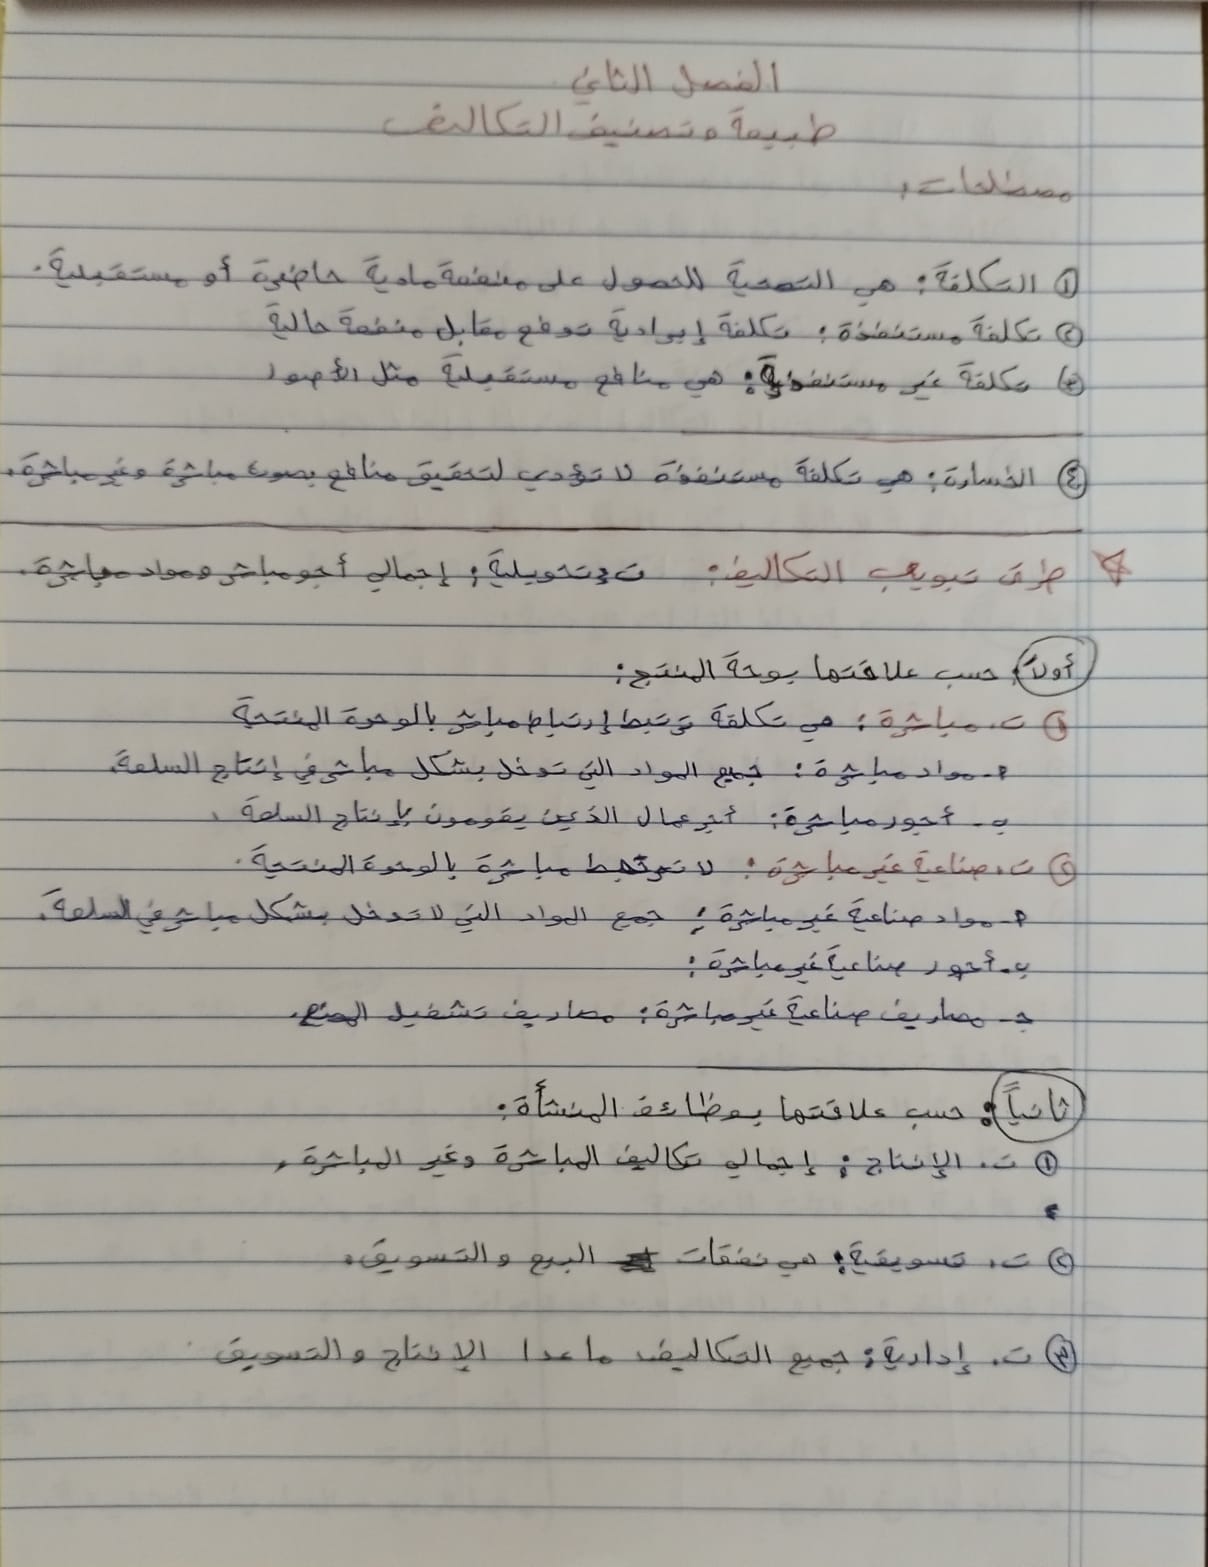 الفصل الثاني
طبيعة وتصنيف التكاليف
مصطلحات:
① التكلفة: هي التضحية للحصول على منفعة مادية حاضرة أو مستقبلية.
② تكلفة مستنفذة: تكلفة إيرادية تدفع مقابل منفعة حالية
③ تكلفة غير مستنفذة: هي منافع مستقبلية مثل الأصول
④ الخسارة: هي تكلفة مستنفذة لا تؤدي لتحقيق منافع بصورة مباشرة وغير مباشرة.
طرق تبويب التكاليف: ت. تحويلية: إجمالي أجور مباشر ومواد مباشرة.
أولاً: حسب علاقتها بوحدة المنتج:
① ت. مباشرة: هي تكلفة ترتبط إرتباط مباشر بالوحدة المنتجة
م- مواد مباشرة: جميع المواد التي تدخل بشكل مباشر في إنتاج السلعة.
ب- أجور مباشرة: أجر عمال الذين يقومون بإنتاج السلعة.
② ت. صناعية غير مباشرة: لا ترتبط مباشرة بالوحدة المنتجة.
م- مواد صناعية غير مباشرة: جمع المواد التي لا تدخل بشكل مباشر في السلعة.
ب- أجور صناعية غير مباشرة:
جـ- مصاريف صناعية غير مباشرة: مصاريف تشغيل المصنع.
ثانياً: حسب علاقتها بوظائف المنشأة:
① ت. الإنتاج: إجمالي تكاليف المباشرة وغير المباشرة.
② ت. تسويقية: هي نفقات البيع والتسويق.
③ ت. إدارية: جميع التكاليف ما عدا الإنتاج والتسويق